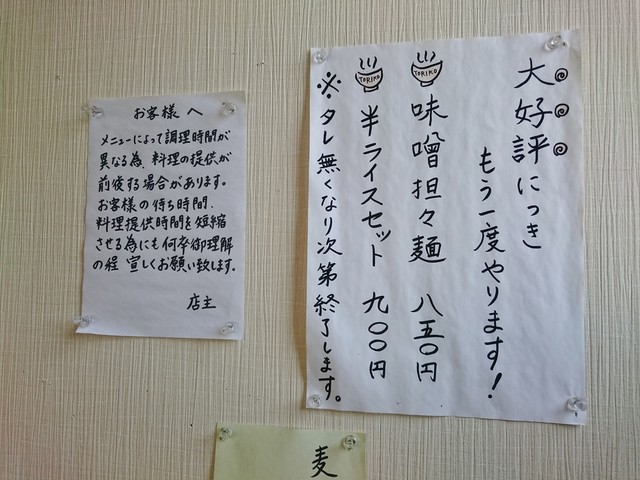 お客様へ
メニューによって調理時間が
異なる為、料理の提供が
前後する場合があります。
お客様の待ち時間、
料理提供時間を短縮
させる為にも何卒御理解
の程 宜しくお願い致します。
店主
大好評につき
もう一度やります!
TORIKO
味噌担々麺 八五〇円
TORIKO
半ライスセット 九〇〇円
※タレ無くなり次第終了します。
麦